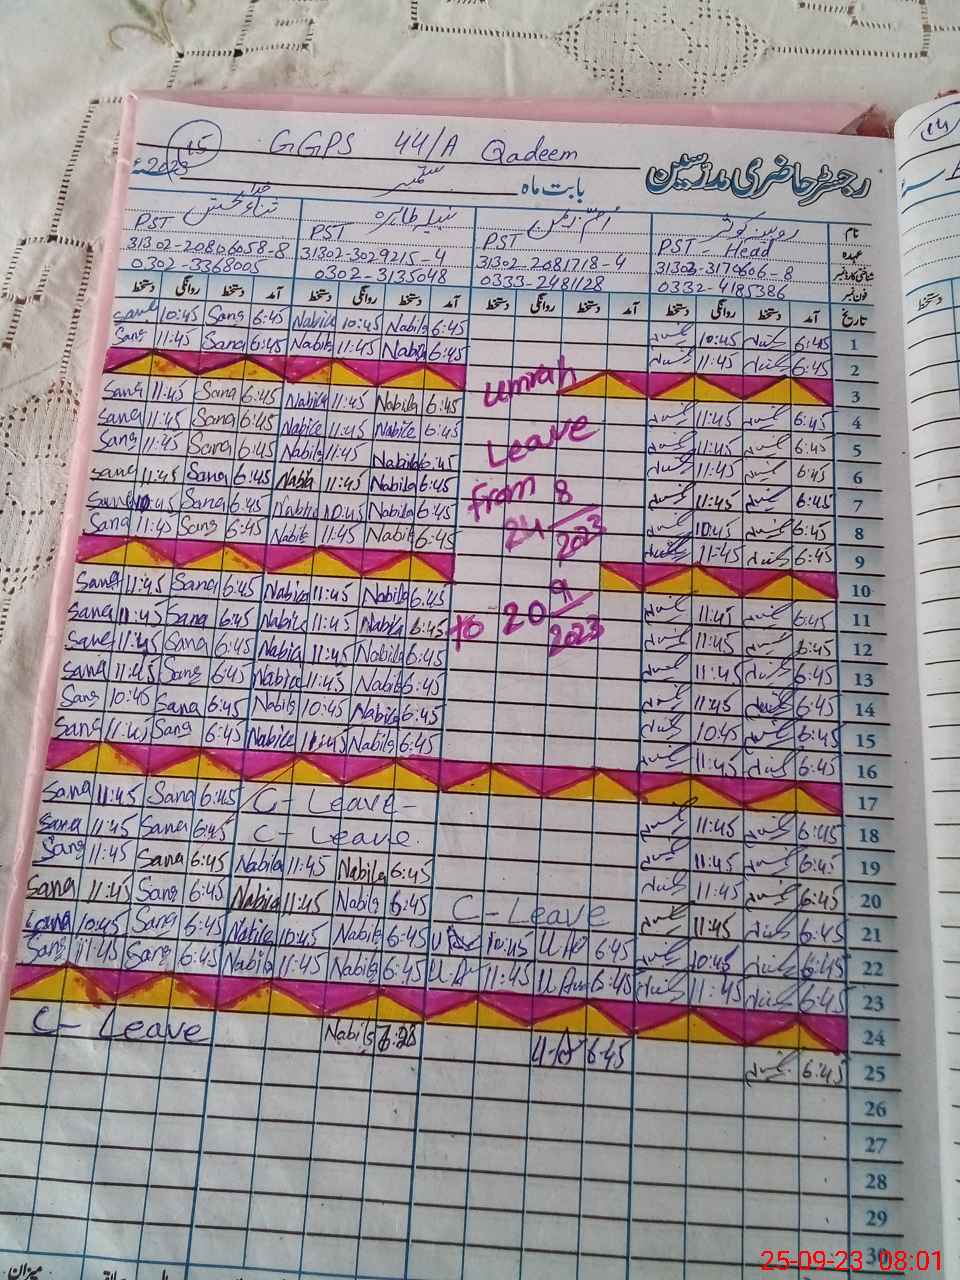 15 GGPS 44/A Qadeem
رجسٹر حاضری مدرسین
بابت ماہ ستمبر 2023ء
نام
PST PST PST PST - Head عہدہ
31302-20806058-8 31302-3029215-4 31302-2081718-4 31303-3170606-8 شناختی کارڈ نمبر
0302-3368005 0302-3135048 0333-2481128 0332-4185386 فون نمبر
دستخط روانگی دستخط آمد دستخط روانگی دستخط آمد دستخط روانگی دستخط آمد دستخط روانگی دستخط آمد تاریخ
Sana 10:45 Sana 6:45 Nabila 10:45 Nabila 6:45 10:45 6:45 1
Sana 11:45 Sana 6:45 Nabila 11:45 Nabila 6:45 11:45 6:45 2
3
Sana 11:45 Sana 6:45 Nabila 11:45 Nabila 6:45 11:45 6:45 4
Sana 11:45 Sana 6:45 Nabila 11:45 Nabila 6:45 11:45 6:45 5
Sana 11:45 Sana 6:45 Nabila 11:45 Nabila 6:45 11:45 6:45 6
Sana 11:45 Sana 6:45 Nabila 11:45 Nabila 6:45 11:45 6:45 7
Sana 10:45 Sana 6:45 Nabila 10:45 Nabila 6:45 10:45 6:45 8
Sana 11:45 Sana 6:45 Nabila 11:45 Nabila 6:45 11:45 6:45 9
Umrah
Leave
From 24/8/2023
to 20/9/2023
10
Sana 11:45 Sana 6:45 Nabila 11:45 Nabila 6:45 11:45 6:45 11
Sana 11:45 Sana 6:45 Nabila 11:45 Nabila 6:45 11:45 6:45 12
Sana 11:45 Sana 6:45 Nabila 11:45 Nabila 6:45 11:45 6:45 13
Sana 11:45 Sana 6:45 Nabila 11:45 Nabila 6:45 11:45 6:45 14
Sana 10:45 Sana 6:45 Nabila 10:45 Nabila 6:45 10:45 6:45 15
Sana 11:45 Sana 6:45 Nabila 11:45 Nabila 6:45 11:45 6:45 16
17
Sana 11:45 Sana 6:45 C- Leave- 11:45 6:45 18
Sana 11:45 Sana 6:45 C- Leave. 11:45 6:45 19
Sana 11:45 Sana 6:45 Nabila 11:45 Nabila 6:45 11:45 6:45 20
Sana 11:45 Sana 6:45 Nabila 11:45 Nabila 6:45 C-Leave 11:45 6:45 21
Sana 10:45 Sana 6:45 Nabila 10:45 Nabila 6:45 10:45 6:45 10:45 6:45 22
Sana 11:45 Sana 6:45 Nabila 11:45 Nabila 6:45 11:45 6:45 11:45 6:45 23
24
C- Leave Nabila U-A 6:45 6:45 25
26
27
28
29
30
میزان
14
دستخط
25-09-23 08:01